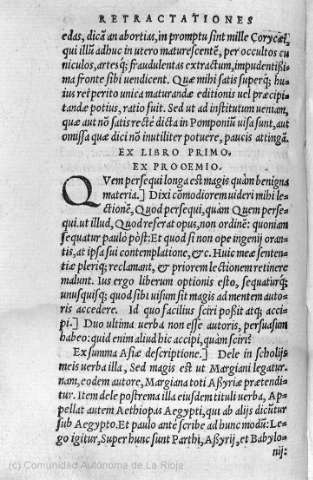 RETRACTATIONES
edas, dicã an abortias, in promptu sint mille Corycæi,
qui illũ adhuc in utero maturescentẽ, per occultos cu
niculos, artesq; fraudulentas extractum, impudentißi-
ma fronte sibi uendicent. Quæ mihi satis superq; hu-
ius rei perito unica maturandæ editionis uel præcipi-
tandæ potius, ratio fuit. Sed ut ad institutum ueniam,
quæ aut nõ satis rectè dicta in Pomponiũ uisa sunt, aut
omissa quæ dici nõ inutiliter potuere, paucis attingã.
EX LIBRO PRIMO.
EX PROOEMIO.
QVem persequi longa est magis quàm benigna
materia.] Dixi cõmodiorem uideri mihi le-
ctionẽ, Quod persequi, quàm Quem perse-
qui. ut illud, Quod referat opus, non ordinẽ: quoniam
sequatur paulò pòst: Et quod si non ope ingenij oran-
tis, at ipsa sui contemplatione, &c. Huic meæ senten-
tiæ pleriq; reclamant, & priorem lectionem retinere
malunt. Ius ergo liberum optionis esto, sequaturq;
unusquisq; quod sibi uisum sit magis ad mentem auto-
ris accedere. Id quo facilius sciri poßit atq; acci-
pi.] Duo ultima uerba non esse autoris, persuasum
habeo: quid enim aliud hic accipi, quàm sciri?
Ex summa Asiæ descriptione.] Dele in scholijs
meis uerba illa, Sed magis est ut Margiani legatur.
nam, eodem autore, Margiana toti Aßyriæ prætendi-
tur. Item dele postrema illa eiusdem tituli uerba, Ap-
pellat autem Aethiopas Aegypti, qui ab alijs dicũtur
sub Aegypto. Et paulo antè scribe ad hunc modũ: Le-
go igitur, Super hunc sunt Parthi, Aßyrij, et Babylo-
nij:
(c) Comunidad Autónoma de La Rioja